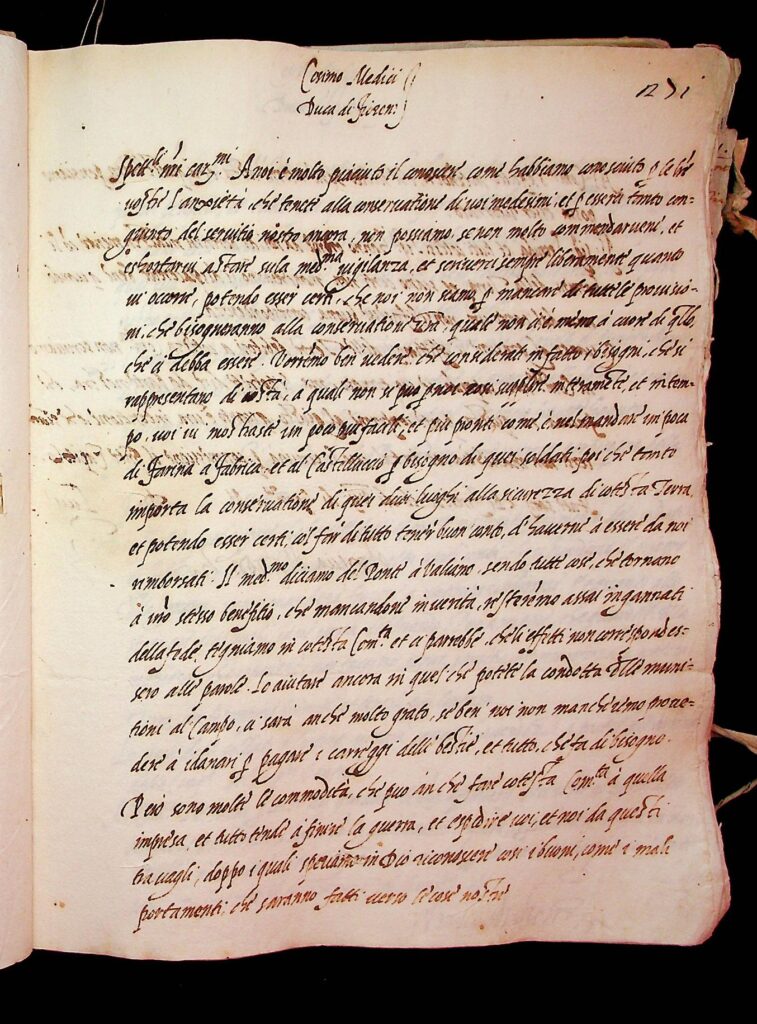 Cosmo Medici
Duca di Fioren:
1271
Spett.li miei car.mi A noi è molto piaciuto il conoscere, come habbiamo conosciuto per le l're
vostre l'ansietà, che tenete alla conservatione di voi medesimi, et per essere tanto con=
giunto del servitio nostro ancora, non possiamo, se non molto commendarvene, et
eshortarvi a stare su la med.ma vigilanza, et scriverci sempre liberamente quanto
vi occorre, potendo esser certi, che noi non siamo per mancare di tutte le provisio=
ni, che bisogneranno alla conservatione v'ra, quale non ci è meno à cuore di q'llo,
che ci debba essere. Vorremo ben vedere, che considerati in fatto i bisogni, che si
rappresentano di costà, a quali non si può per noi così supplire interamente, et in tem=
po, voi vi mostraste un poco più facili, et più pronti come è nel mandare un poca
di farina a fabrica, et al Castelluccio per bisogno di quei soldati, poi che tanto
importa la conservatione di quei duoi luoghi alla sicurezza di cotesta Terra,
et potendo esser certi, col far di tutto tener buon conto, d'haverne à essere da noi
rimborsati. Il med.mo diciamo del Ponte à Valiano, sendo tutte cose, che tornano
à v'ro stesso benefitio, che mancandone in verità, resteremo assai ingannati
della fede, tegniamo in cotesta Com.tà et ci parrebbe, che li effetti non corrispondes=
sero alle parole. Lo aiutare ancora in quel che potete la condotta delle muni=
tioni al Campo, ci sarà anche molto grato, se ben noi non mancheremo prove=
dere à i danari per pagare i carreggi delle bestie, et tutto, che fa di bisogno.
Però sono molte le commodità, che può anche fare cotesta Com.tà à quella
impresa, et tutto tende à finire la guerra, et espedire voi, et noi da questi
travagli, doppo i quali speriamo in Dio riconoscere così i buoni, come i mali
portamenti, che saranno fatti verso le cose nostre